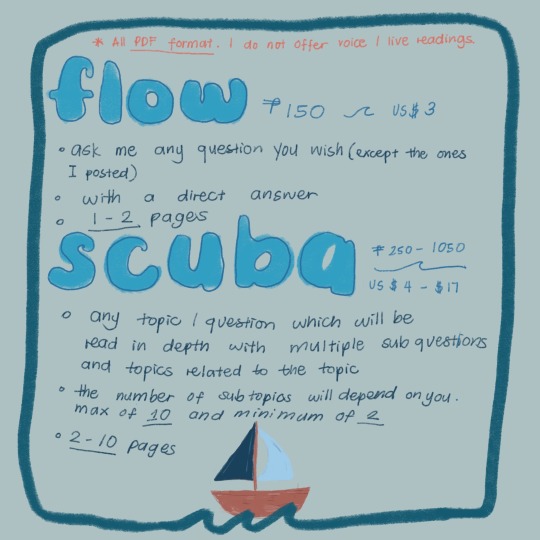 * All PDF format. I do not offer voice / live readings.
flow ₱150 ~ US$3
• ask me any question you wish (except the ones
I posted)
• with a direct answer
• 1-2 pages
scuba ₱250 - 1050
US$4 - $17
• any topic / question which will be
read in depth with multiple sub questions
and topics related to the topic
• the number of subtopics will depend on you.
max of 10 and minimum of 2
• 2-10 pages